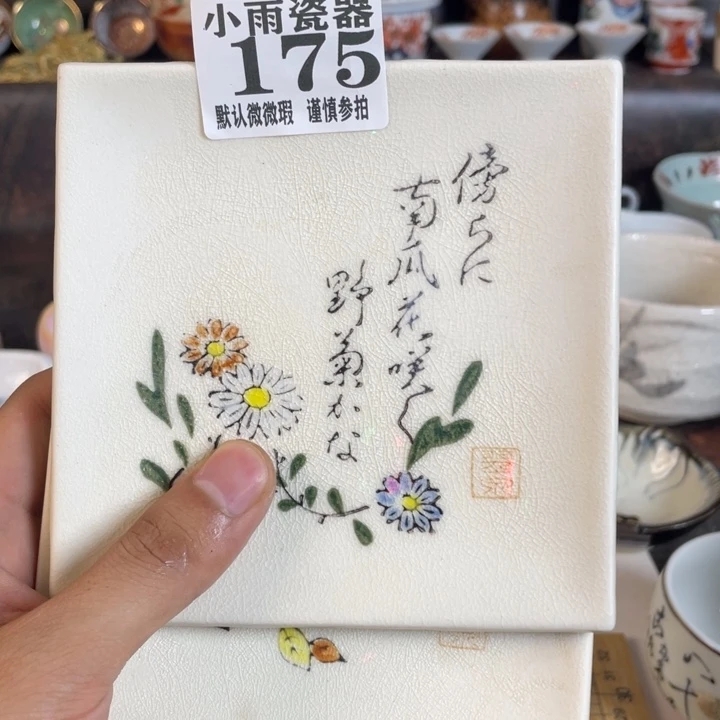 小雨瓷器
175
默认微微瑕 谨慎参拍
傍らに
南瓜花咲く
野菊かな